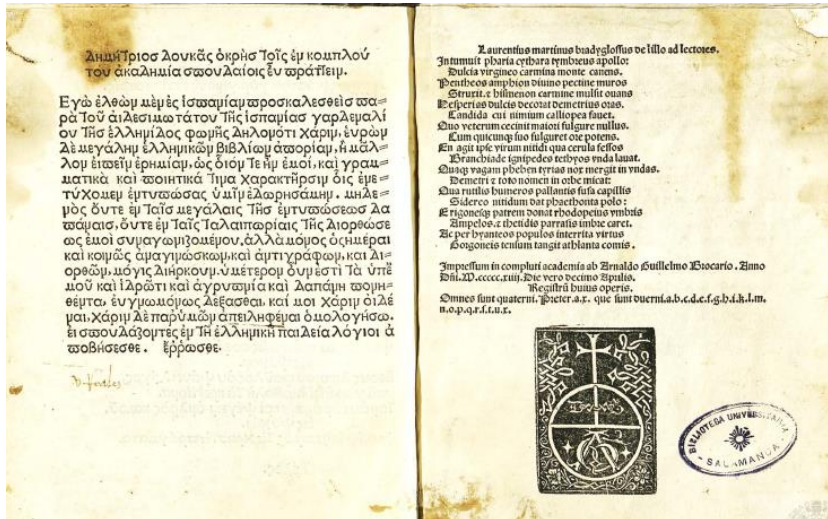 Δημήτριος Δουκᾶς ὁ κρὴς τοῖς ἐν κομπλού
του ἀκαδημία σπουδαίοις ἐν πράττειν.
Εγὼ ἐλθὼν μὲν ἐς ἱσπανίαν προσκαλεσθεὶς πα=
ρὰ τοῦ αἰδεσιμωτάτου τῆς ἱσπανίας γαρδεναλί
ου τῆς ἑλληνίδος φωνῆς δηλονότι χάριν, εὑρὼν
δὲ μεγάλην ἑλληνικῶν βιβλίων ἀπορίαν, ἢ μᾶλ=
λον εἰπεῖν ἐρημίαν, ὡς οἷόν τε ἦν ἐμοί, καὶ γραμ=
ματικὰ καὶ ποιητικά τινα χαρακτῆρσιν οἷς ἐνε=
τύχομεν ἐντυπώσας ὑμῖν ἐδωρησάμην. μηδε=
νὸς οὔτε ἐν ταῖς μεγάλαις τῆς ἐντυπώσεως δα
πάναις, οὔτε ἐν ταῖς ταλαιπωρίαις τῆς διορθώσε
ως ἐμοὶ συναγωνιζομένου, ἀλλὰ μόνος ὁσημέραι
καὶ κοινῶς ἀναγινώσκων, καὶ ἀντιγράφων, καὶ δι=
ορθῶν, μόγις διήρκουν. ὑμέτερον οὖν ἐστὶ τὰ ὑπ' ἐ
μοῦ καὶ ἱδρῶτι καὶ ἀγρυπνία καὶ δαπάνη πονη=
θέντα, εὐγνωμόνως δέξασθαι, καί μοι χάριν εἰδέ
ναι, χάριν δὲ παρ' ὑμῶν ἀπειληφέναι ὁμολογήσω.
εἰ σπουδάζοντες ἐν τῆ ἑλληνικῆ παιδεία λόγιοι ἀ
ποβήσεσθε. ἔρρωσθε.
Laurentius martinus bradyglossus de lillo ad lectores.
Intumuit pharia cythara tymbreus apollo:
Dulcia virgineo carmina monte canens.
Pentheos amphion diuino pectine muros
Struxit. ⁊ hismenon carmine mulsit ouans
Hesperias dulcis decorat demetrius oras.
Candida cui nimium calliopea fauet.
Quo veterum cecinit maiori fulgure nullus.
Cum quicunq; suo fulguret ore potens.
En agit ipse virum nitidi qua cerula fessos
Branchiade ignipedes tethyos vnda lauat.
Quaq; vagam pheben tyrias nox mergit in vndas.
Demetri ⁊ toto nomen in orbe micat:
Qua rutilis humeros pallantis fusa capillis
Sidereo nitidum dat phaethonta polo:
Erigonesq; patrem donat rhodopeius vmbris
Ampelos. ⁊ thetidis parrasis imbre caret.
Ac per hyanteos populos interrita virtus
Gorgoneis tenium tangit athlanta comis.
Impressum in compluti academia ab Arnaldo Guillelmo Brocario. Anno
Dñi. M.ccccc.xiiij. Die vero decimo Aprilis.
Registrũ huius operis.
Omnes sunt quaterni. Preter .a.x. que sunt duerni. a.b.c.d.e.f.g.h.i.k.l.m.
n.o.p.q.r.s.t.u.x.
BIBLIOTECA UNIVERSITARIA
- SALAMANCA -